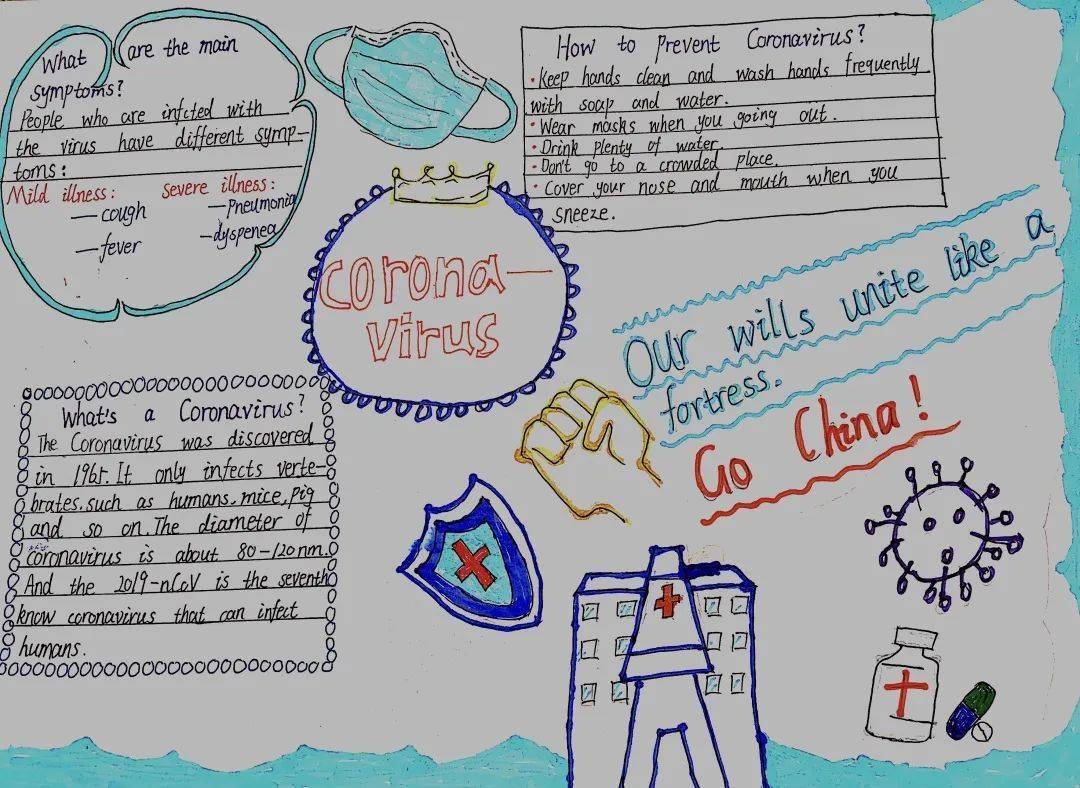 What are the main
symptoms?
People who are infcted with
the virus have different symp-
toms:
Mild illness: Severe illness:
—cough —Pneumonia
—fever —dyspenea
How to prevent Coronavirus?
·Keep hands clean and wash hands frequently
with soap and water.
·Wear masks when you going out.
·Drink plenty of water.
·Don't go to a crowded place.
·Cover your nose and mouth when you
sneeze.
corona—
virus
Our wills unite like a
fortress.
Go China!
What's a Coronavirus?
The Coronavirus was discovered
in 1965. It only infects verte-
brates.such as humans.mice.pig
and so on.The diameter of
coronavirus is about 80-120nm.
And the 2019-nCoV is the seventh
know coronavirus that can infect
humans.